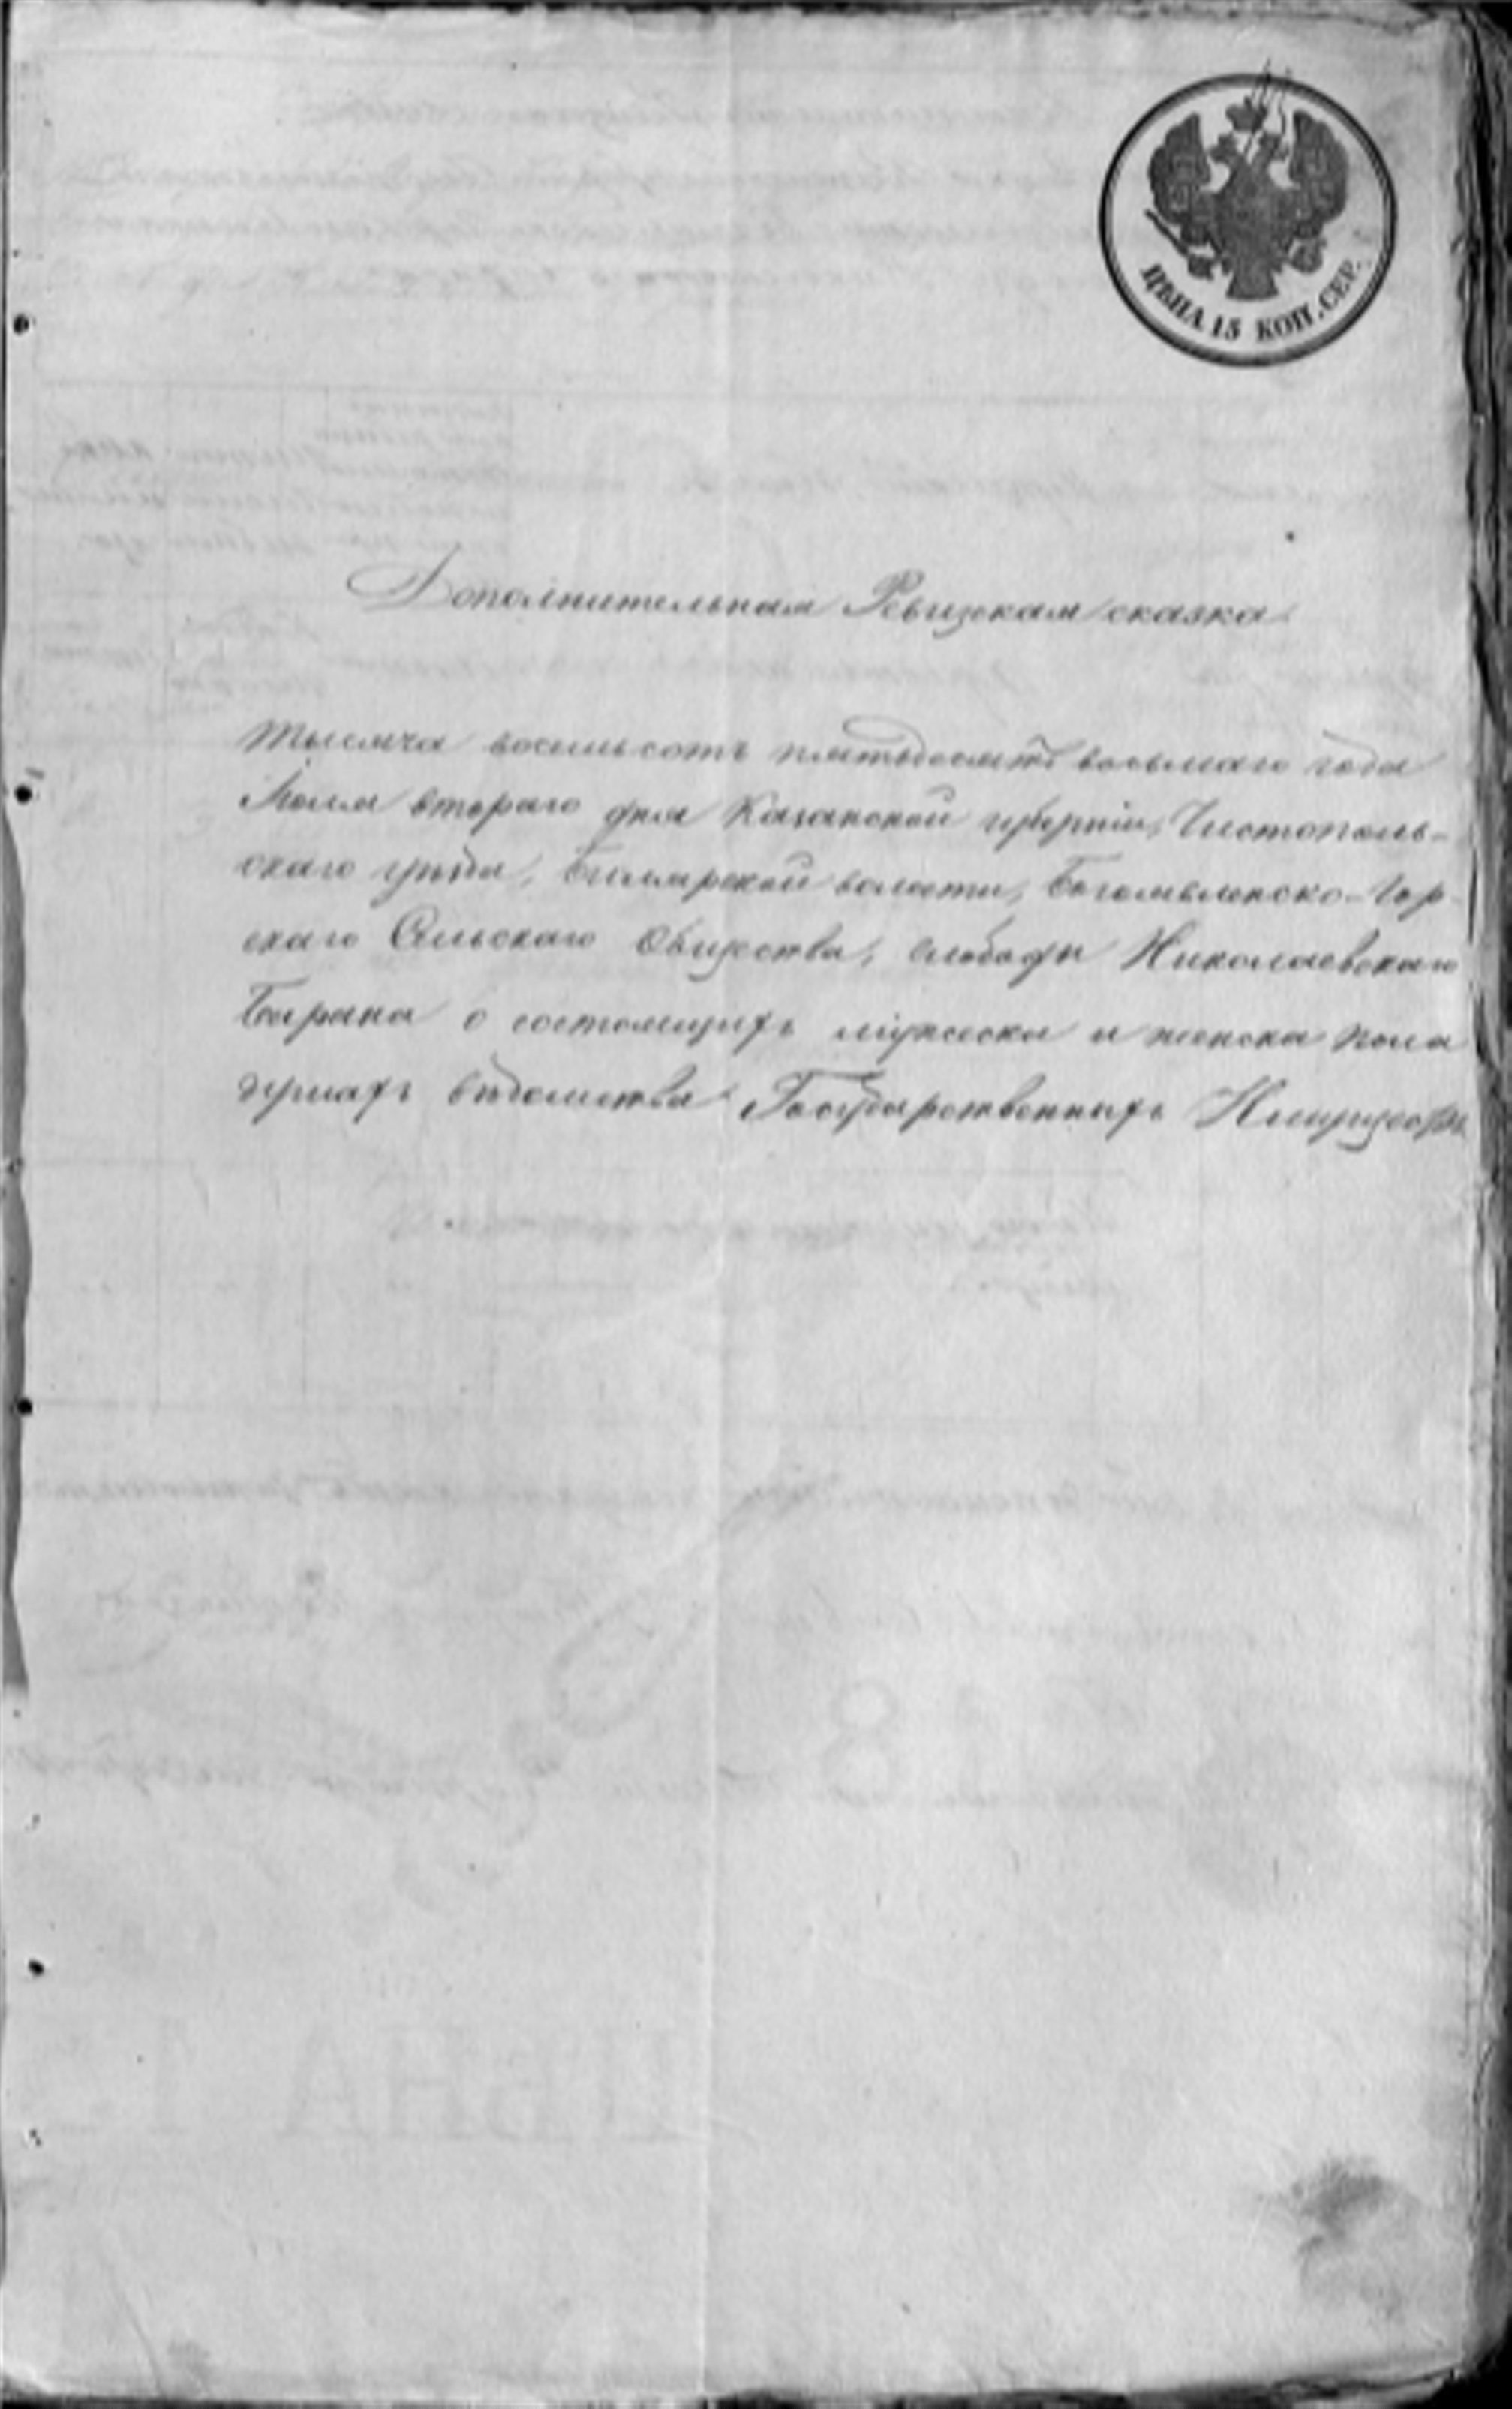 ЦѢНА 15 КОП. СЕР.
Дополнительная Ревизская сказка
Тысяча восемьсотъ пятьдесятъ восьмаго года
втораго дня Казанской губерніи, Чистополь-
скаго уѣзда, Билярской волости, Богоявленско-Гор-
скаго Сельскаго Общества, слободы Николаевскаго
Барана о состоящихъ мужеска и женска пола
душахъ вѣдомства Государственныхъ Имуществъ